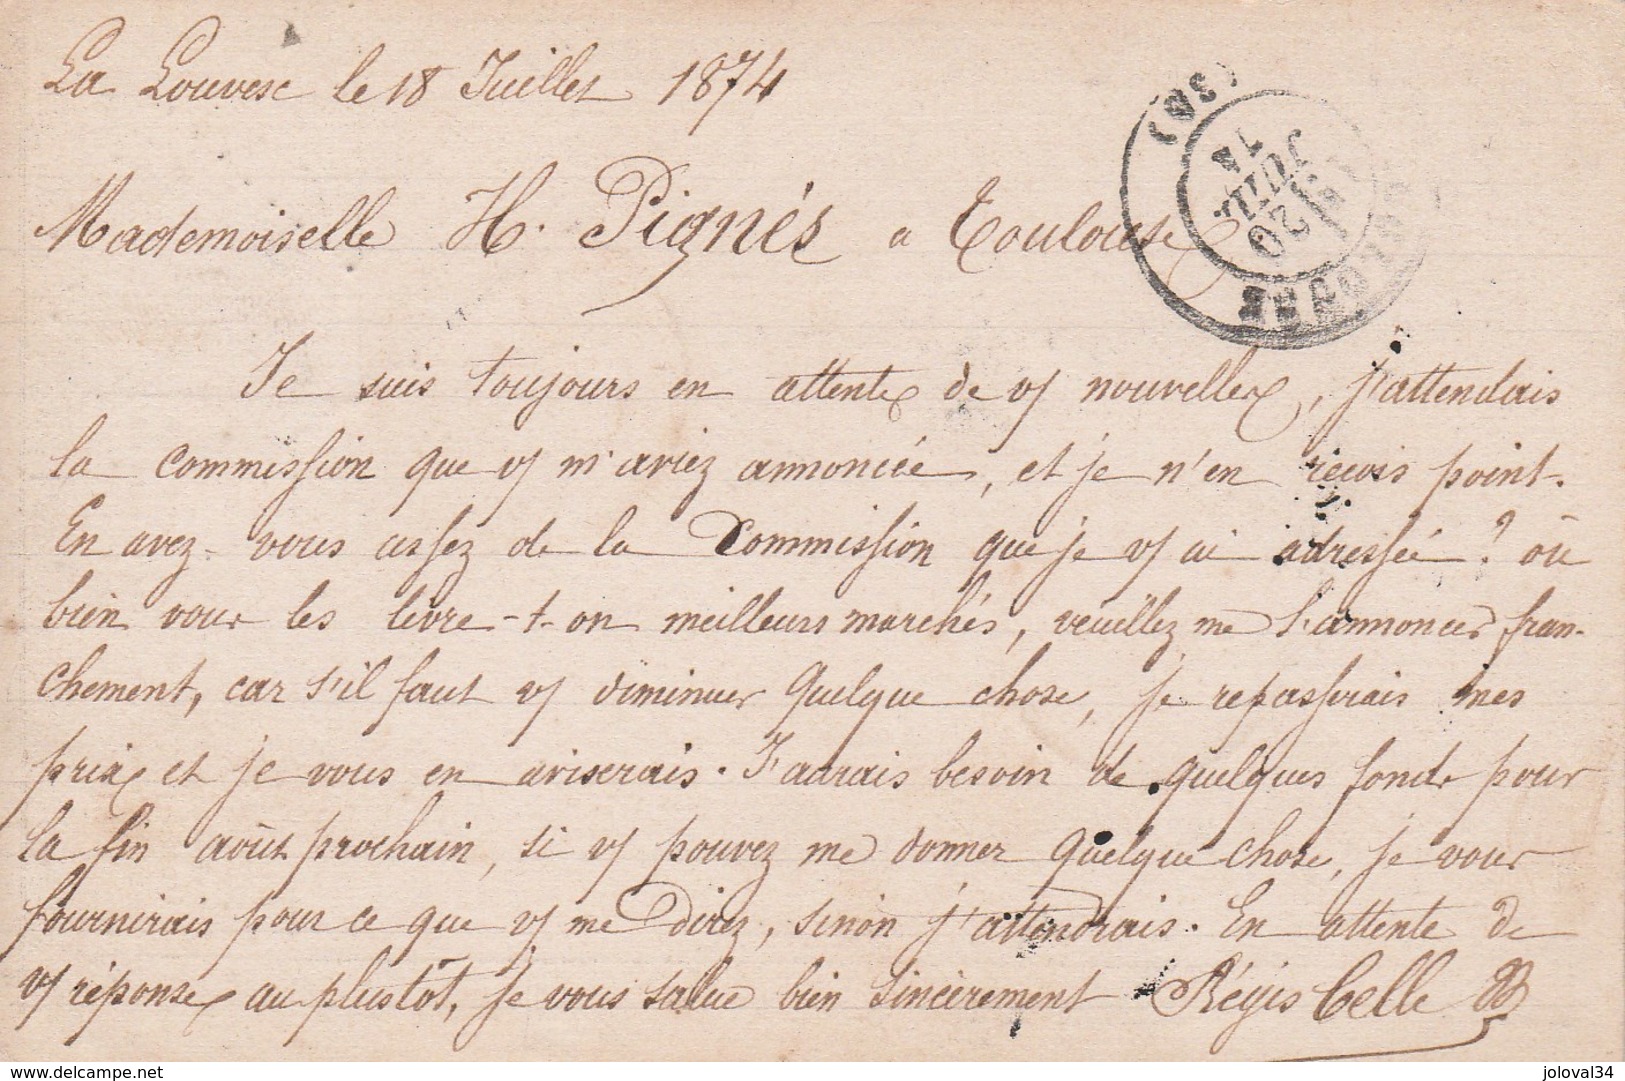 La Louvesc le 18 Juillet 1874
Mademoiselle H. Pignés a Toulouse
Je suis toujours en attente de vs nouvelles, j'attendais
la commission que vs m'aviez annoncée, et je n'en reçois point.
En avez-vous assez de la Commission que je vs ai adressée? où
bien vous les livre-t-on meilleurs marchés, veuillez me l'annoncer fran-
chement, car s'il faut vs diminuer quelque chose, je repasserais mes
prix et je vous en aviserais. J'aurais besoin de quelques fonds pour
la fin août prochain, si vs pouvez me donner quelque chose, je vous
fournirais pour ce que vs me direz, sinon j'attendrais. En attente de
vs réponse au plustôt, je vous salue bien sincèrement Régis Celle
TOULOUSE
20
JUIL.
74
(30)
www.delcampe.net
joloval34